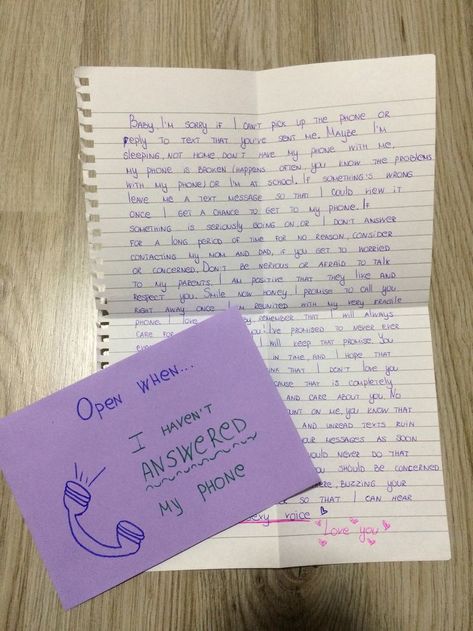 Baby, I'm sorry if I can't pick up the phone or
reply to text that you've sent me. Maybe I'm
sleeping, not home, don't have my phone with me,
my phone is broken (happens often, you know the problems
with my phone) or I'm at school. If something's wrong
leave me a text message so that I could view it
once I get a chance to get to my phone. If
something is seriously going on, or I don't answer
for a long period of time for no reason, consider
contacting my mom and dad, if you get to worried
or concerned. Don't be nervous or afraid to talk
to my parents, I am positive that they like and
respect you. Smile now honey, I promise to call you
right away once I'm reunited with my very fragile
phone. I love remember that I will always
care for you. I've promised to never ever
I will keep that promise. You
in time, and I hope that
think that I don't love you
because that is completely
and care about you. No
count on me, you know that
and unread texts ruin
your messages as soon
would never do that
you should be concerned
here, buzzing your
so that I can hear
sexy voice
Love you
Open when...
I haven't
answered
my phone